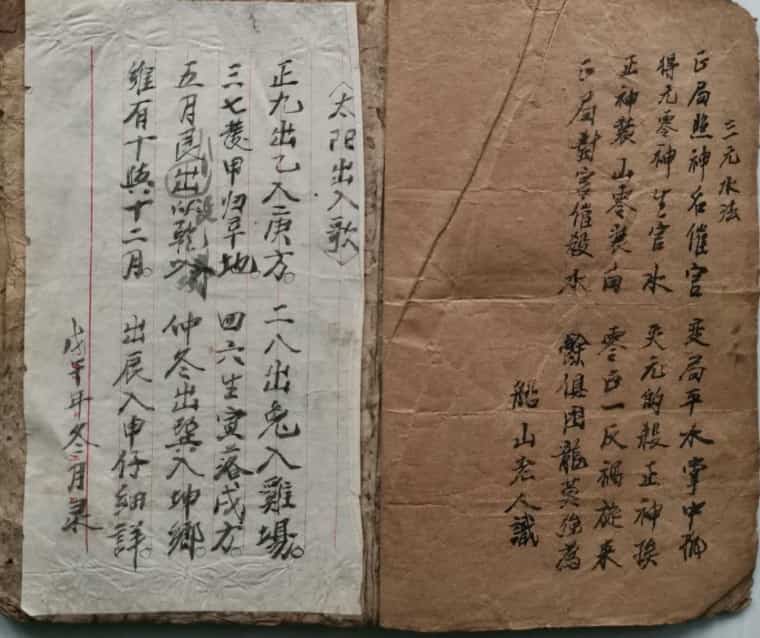 三元水法
正局照神名催官 变局平水掌中
得元零神生官水 失元的殺正神挨
正神裝山零裝向 零正一反禍旋來
正局對宮催殺水 餘俱困龍莫強為
船山老人識
〈太阳出入歌〉
正九出乙入庚方。 二八出兔入雞場。
三七發甲归辛地。 四六生寅落戌方。
五月艮出以乾 仲冬出巽入坤鄉。
維有十與十二月。 出辰入申仔細詳。
年冬二月录